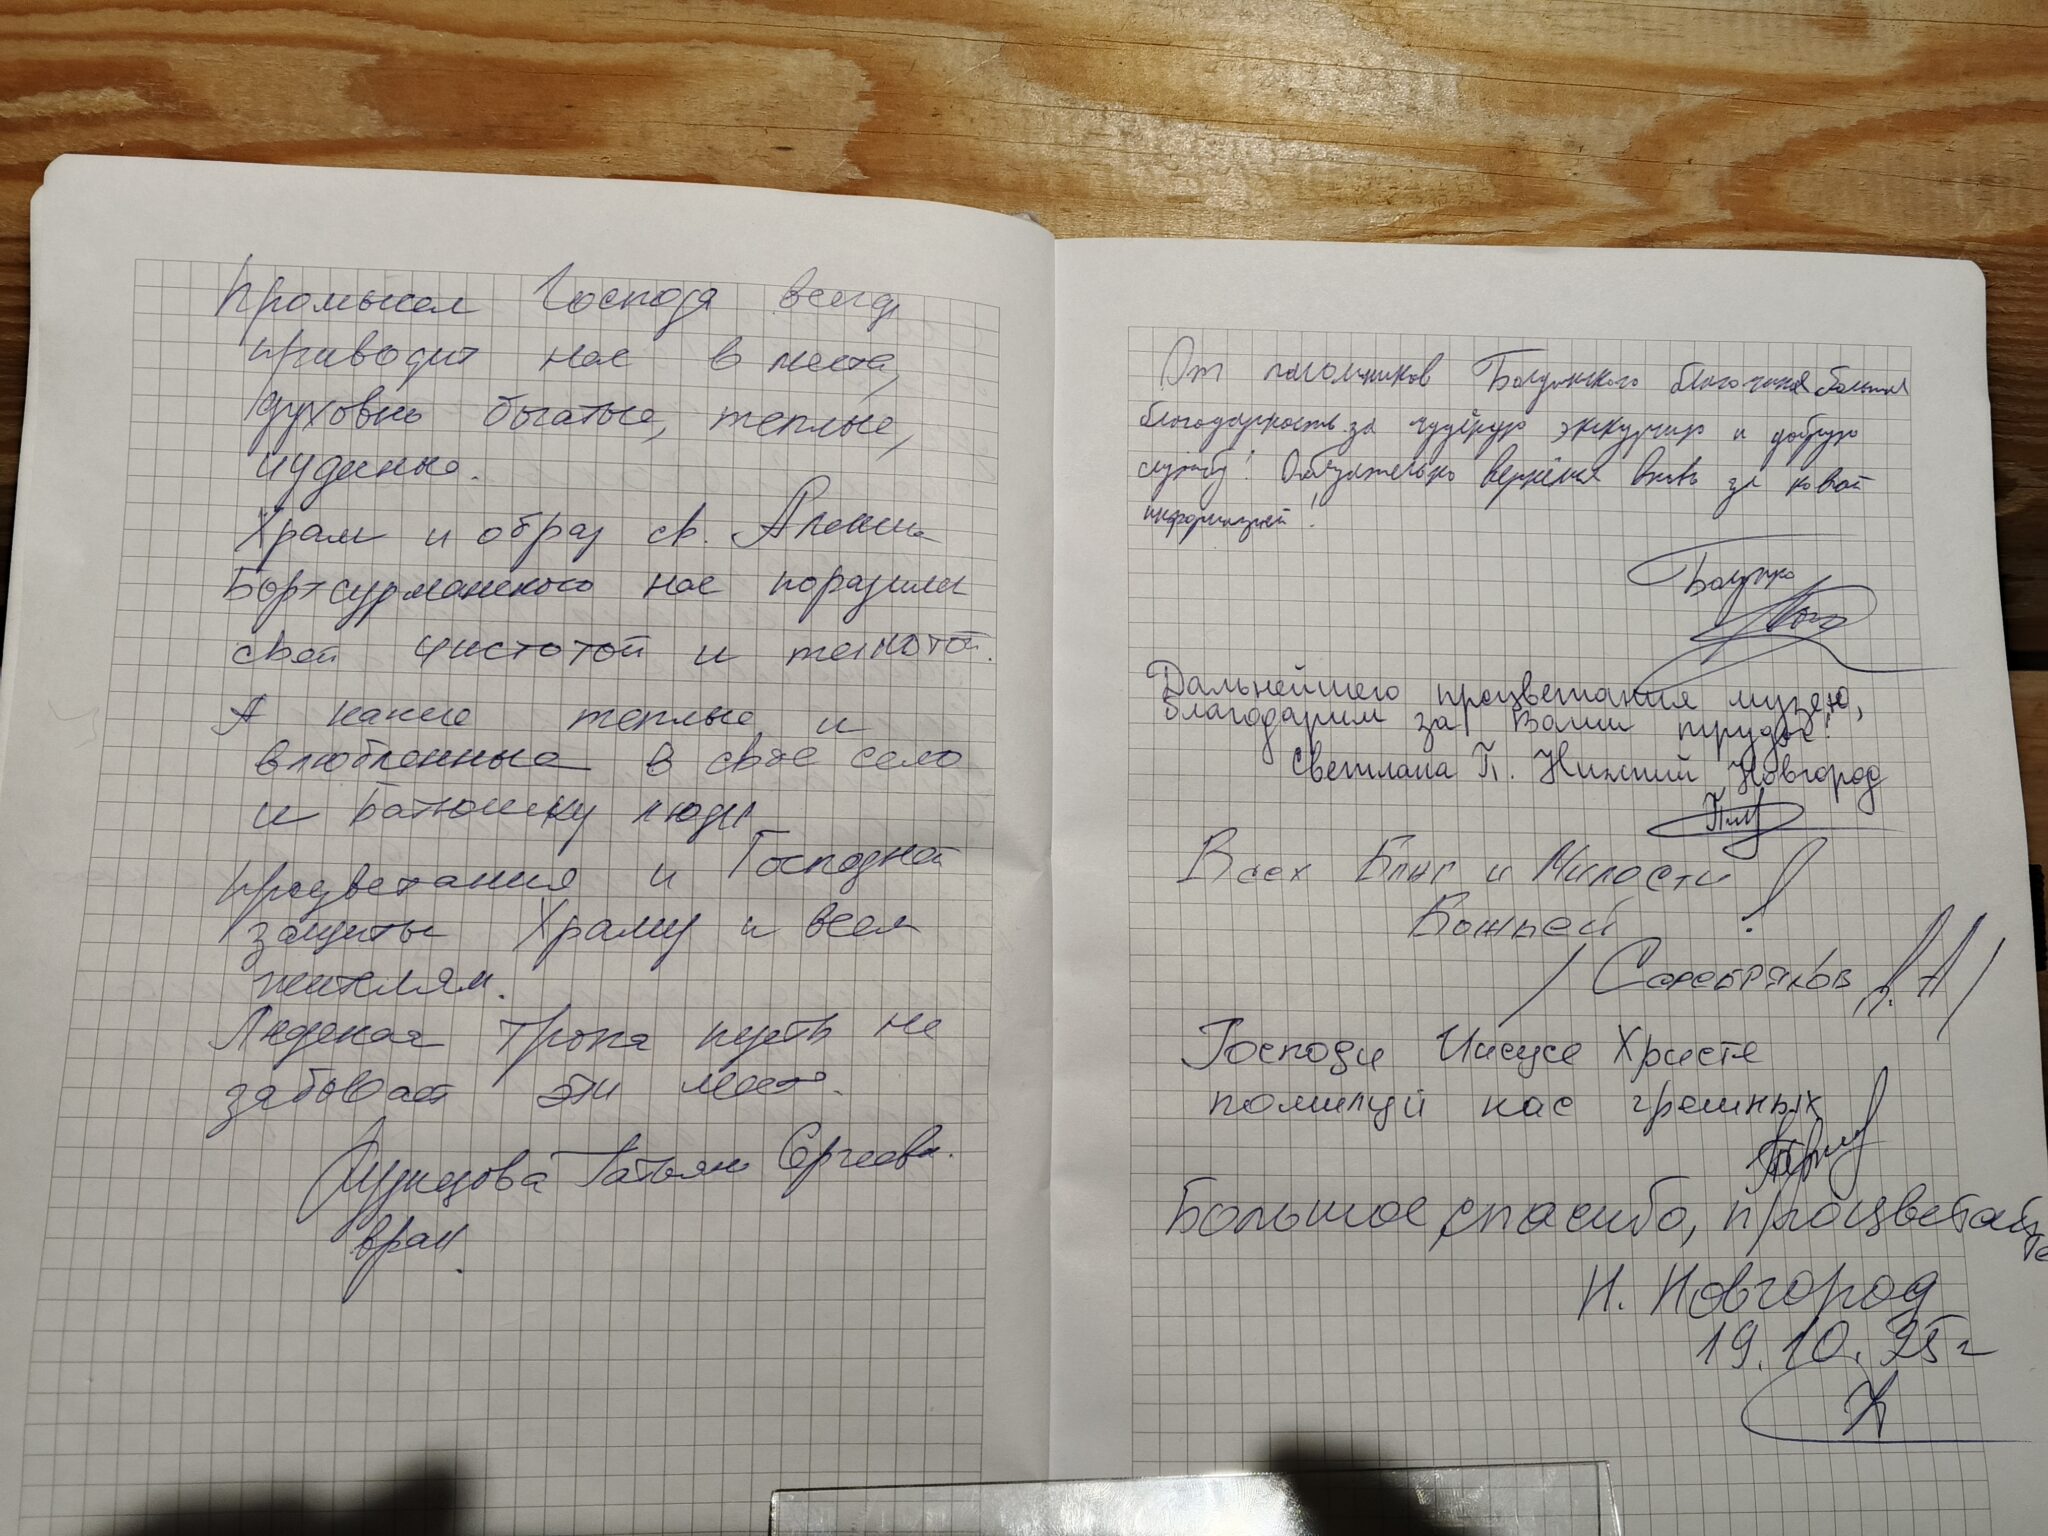 Промысел Господа всегда
приводит нас в места,
духовно богатые, теплые,
чудные.
Храм и образ св. Алексия
Бортсурманского нас поразили
своей чистотой и теплотой.
А какие теплые и
влюбленные в свое село
и Батюшку люди
Процветания и Господней
защиты Храму и всем
жителям.
Людская тропа пусть не
забывает эти места.
Татьяна Сергеевна.
врач.
От паломников Болдинского благочиния большая
благодарность за чудную экскурсию и добрую
службу! Обязательно вернёмся вновь за новой
информацией!
Дальнейшего процветания музею,
благодарим за Ваши труды!
Светлана П. Нижний Новгород
Всех Благ и Милости
Божьей!
/Серебряков А.А/
Господи Иисусе Христе
помилуй нас грешных
Большое спасибо, процветайте
Н. Новгород
19.10.25г